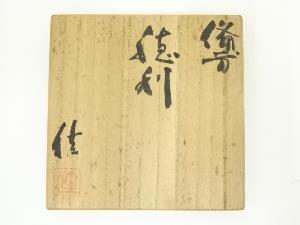 備前
徳利
佳